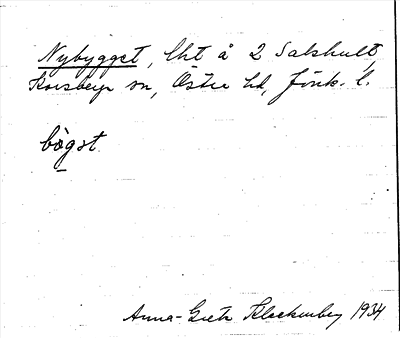 Nybygget, lht å 2 Salshult,
Korsberga sn, Östra hd, Jönk. l.
bögst
Anna-Greta Klackenberg 1934